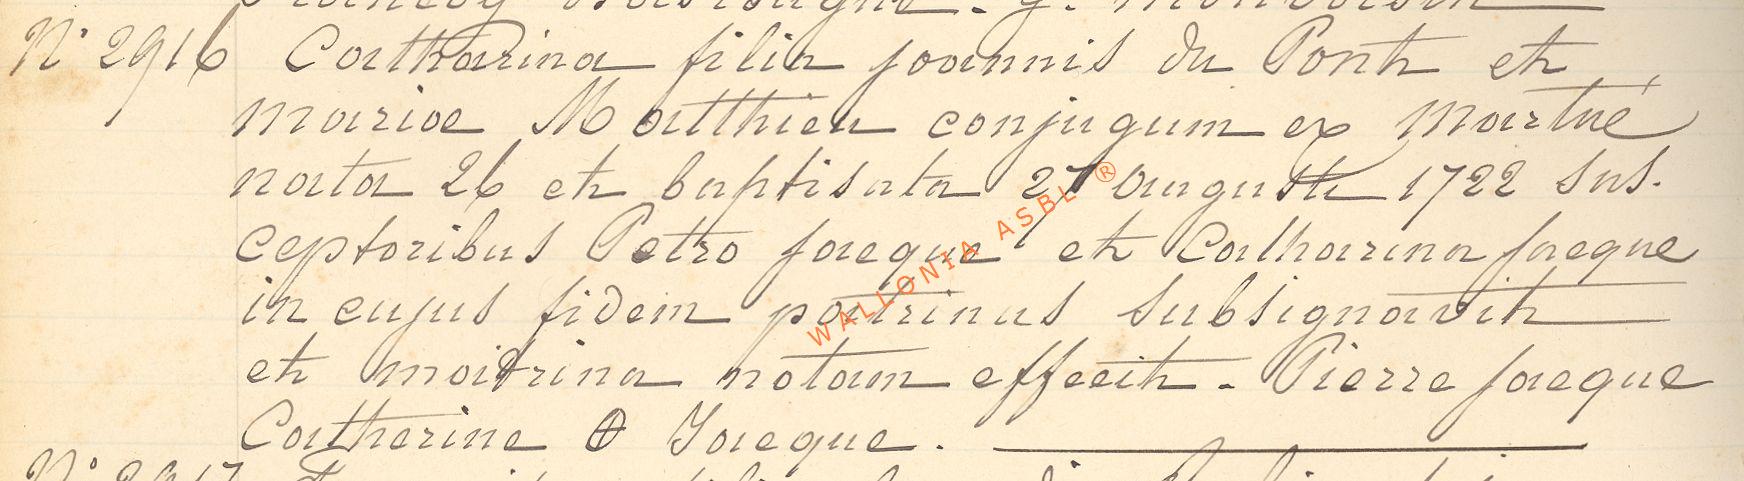 N° 2916 Catharina filia joannis du Pont et
mariae Matthieu conjugum ex Martué
nata 26 et baptisata 27 augusti 1722 sus.
ceptoribus Petro jacque et Catharina jacque
in cujus fidem patrinus subsignavit
et matrina notam effecit - Pierre jacque
Catherine O Jacque.
N° 2917
WALLONIA ASBL ®